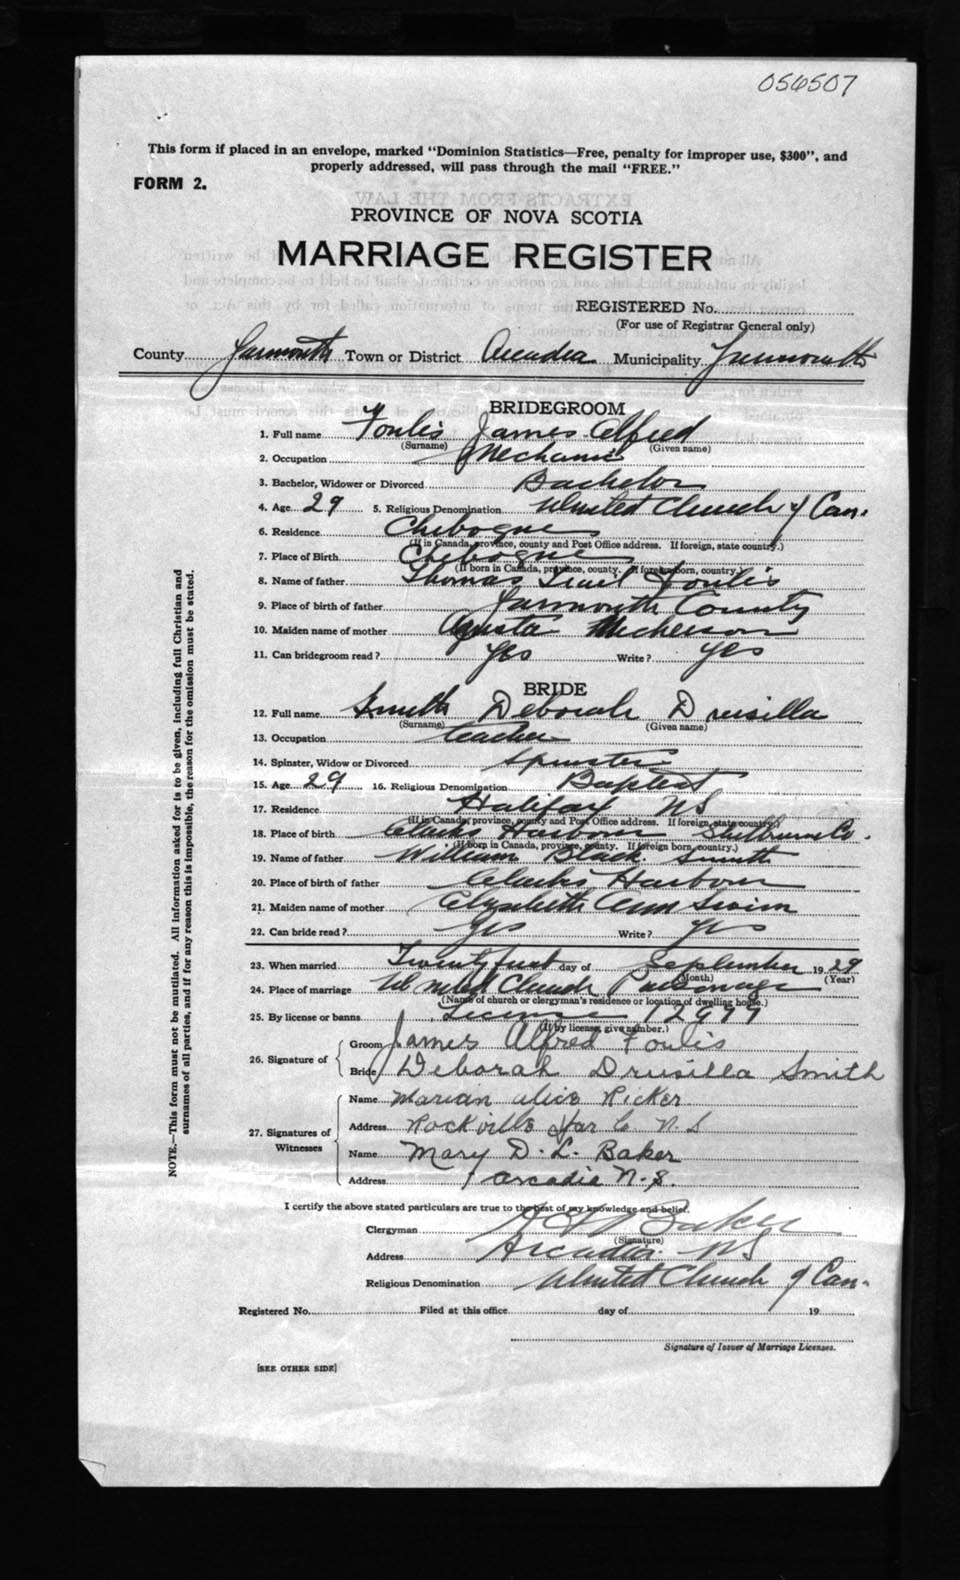 056507
This form if placed in an envelope, marked "Dominion Statistics—Free, penalty for improper use, $300", and
properly addressed, will pass through the mail "FREE."
FORM 2.
PROVINCE OF NOVA SCOTIA
MARRIAGE REGISTER
REGISTERED No.
(For use of Registrar General only)
County Yarmouth Town or District Arcadia Municipality Yarmouth
BRIDEGROOM
1. Full name Foulis James Alfred
(Surname) (Given name)
2. Occupation Mechanic
3. Bachelor, Widower or Divorced Bachelor
4. Age 29 5. Religious Denomination United Church of Can.
6. Residence Chebogue
(If in Canada, province, county and Post Office address. If foreign, state country.)
7. Place of Birth Chebogue
(If born in Canada, province, county. If foreign born, country.)
8. Name of father Thomas Trail Foulis
9. Place of birth of father Yarmouth County
10. Maiden name of mother Agusta Nickerson
11. Can bridegroom read? Yes Write? Yes
BRIDE
12. Full name Smith Deborah Drusilla
(Surname) (Given name)
13. Occupation teacher
14. Spinster, Widow or Divorced Spinster
15. Age 29 16. Religious Denomination Baptist
17. Residence Halifax NS
(If in Canada, province, county and Post Office address. If foreign, state country.)
18. Place of birth Clarks Harbour Shelburne Co.
(If born in Canada, province, county. If foreign born, country.)
19. Name of father William Black Smith
20. Place of birth of father Clarks Harbour
21. Maiden name of mother Elizabeth Ann Swim
22. Can bride read? Yes Write? Yes
23. When married Twenty first day of September 1929
(Month) (Year)
24. Place of marriage United Church Parsonage
(Name of church or clergyman's residence or location of dwelling house.)
25. By license or banns License 12977
(If by license, give number.)
26. Signature of Groom James Alfred Foulis
Bride Deborah Drusilla Smith
27. Signatures of Witnesses
Name Marian Alice Ricker
Address Rockville Yar Co N.S
Name Mary D. L. Baker
Address Arcadia N.S.
I certify the above stated particulars are true to the best of my knowledge and belief.
Clergyman Baker
(Signature)
Address Arcadia NS
Religious Denomination United Church of Can.
Registered No. Filed at this office day of 19
Signature of Issuer of Marriage Licenses.
[SEE OTHER SIDE]
NOTE.—This form must not be mutilated. All information asked for is to be given, including full Christian and
surnames of all parties, and if for any reason this is impossible, the reason for the omission must be stated.